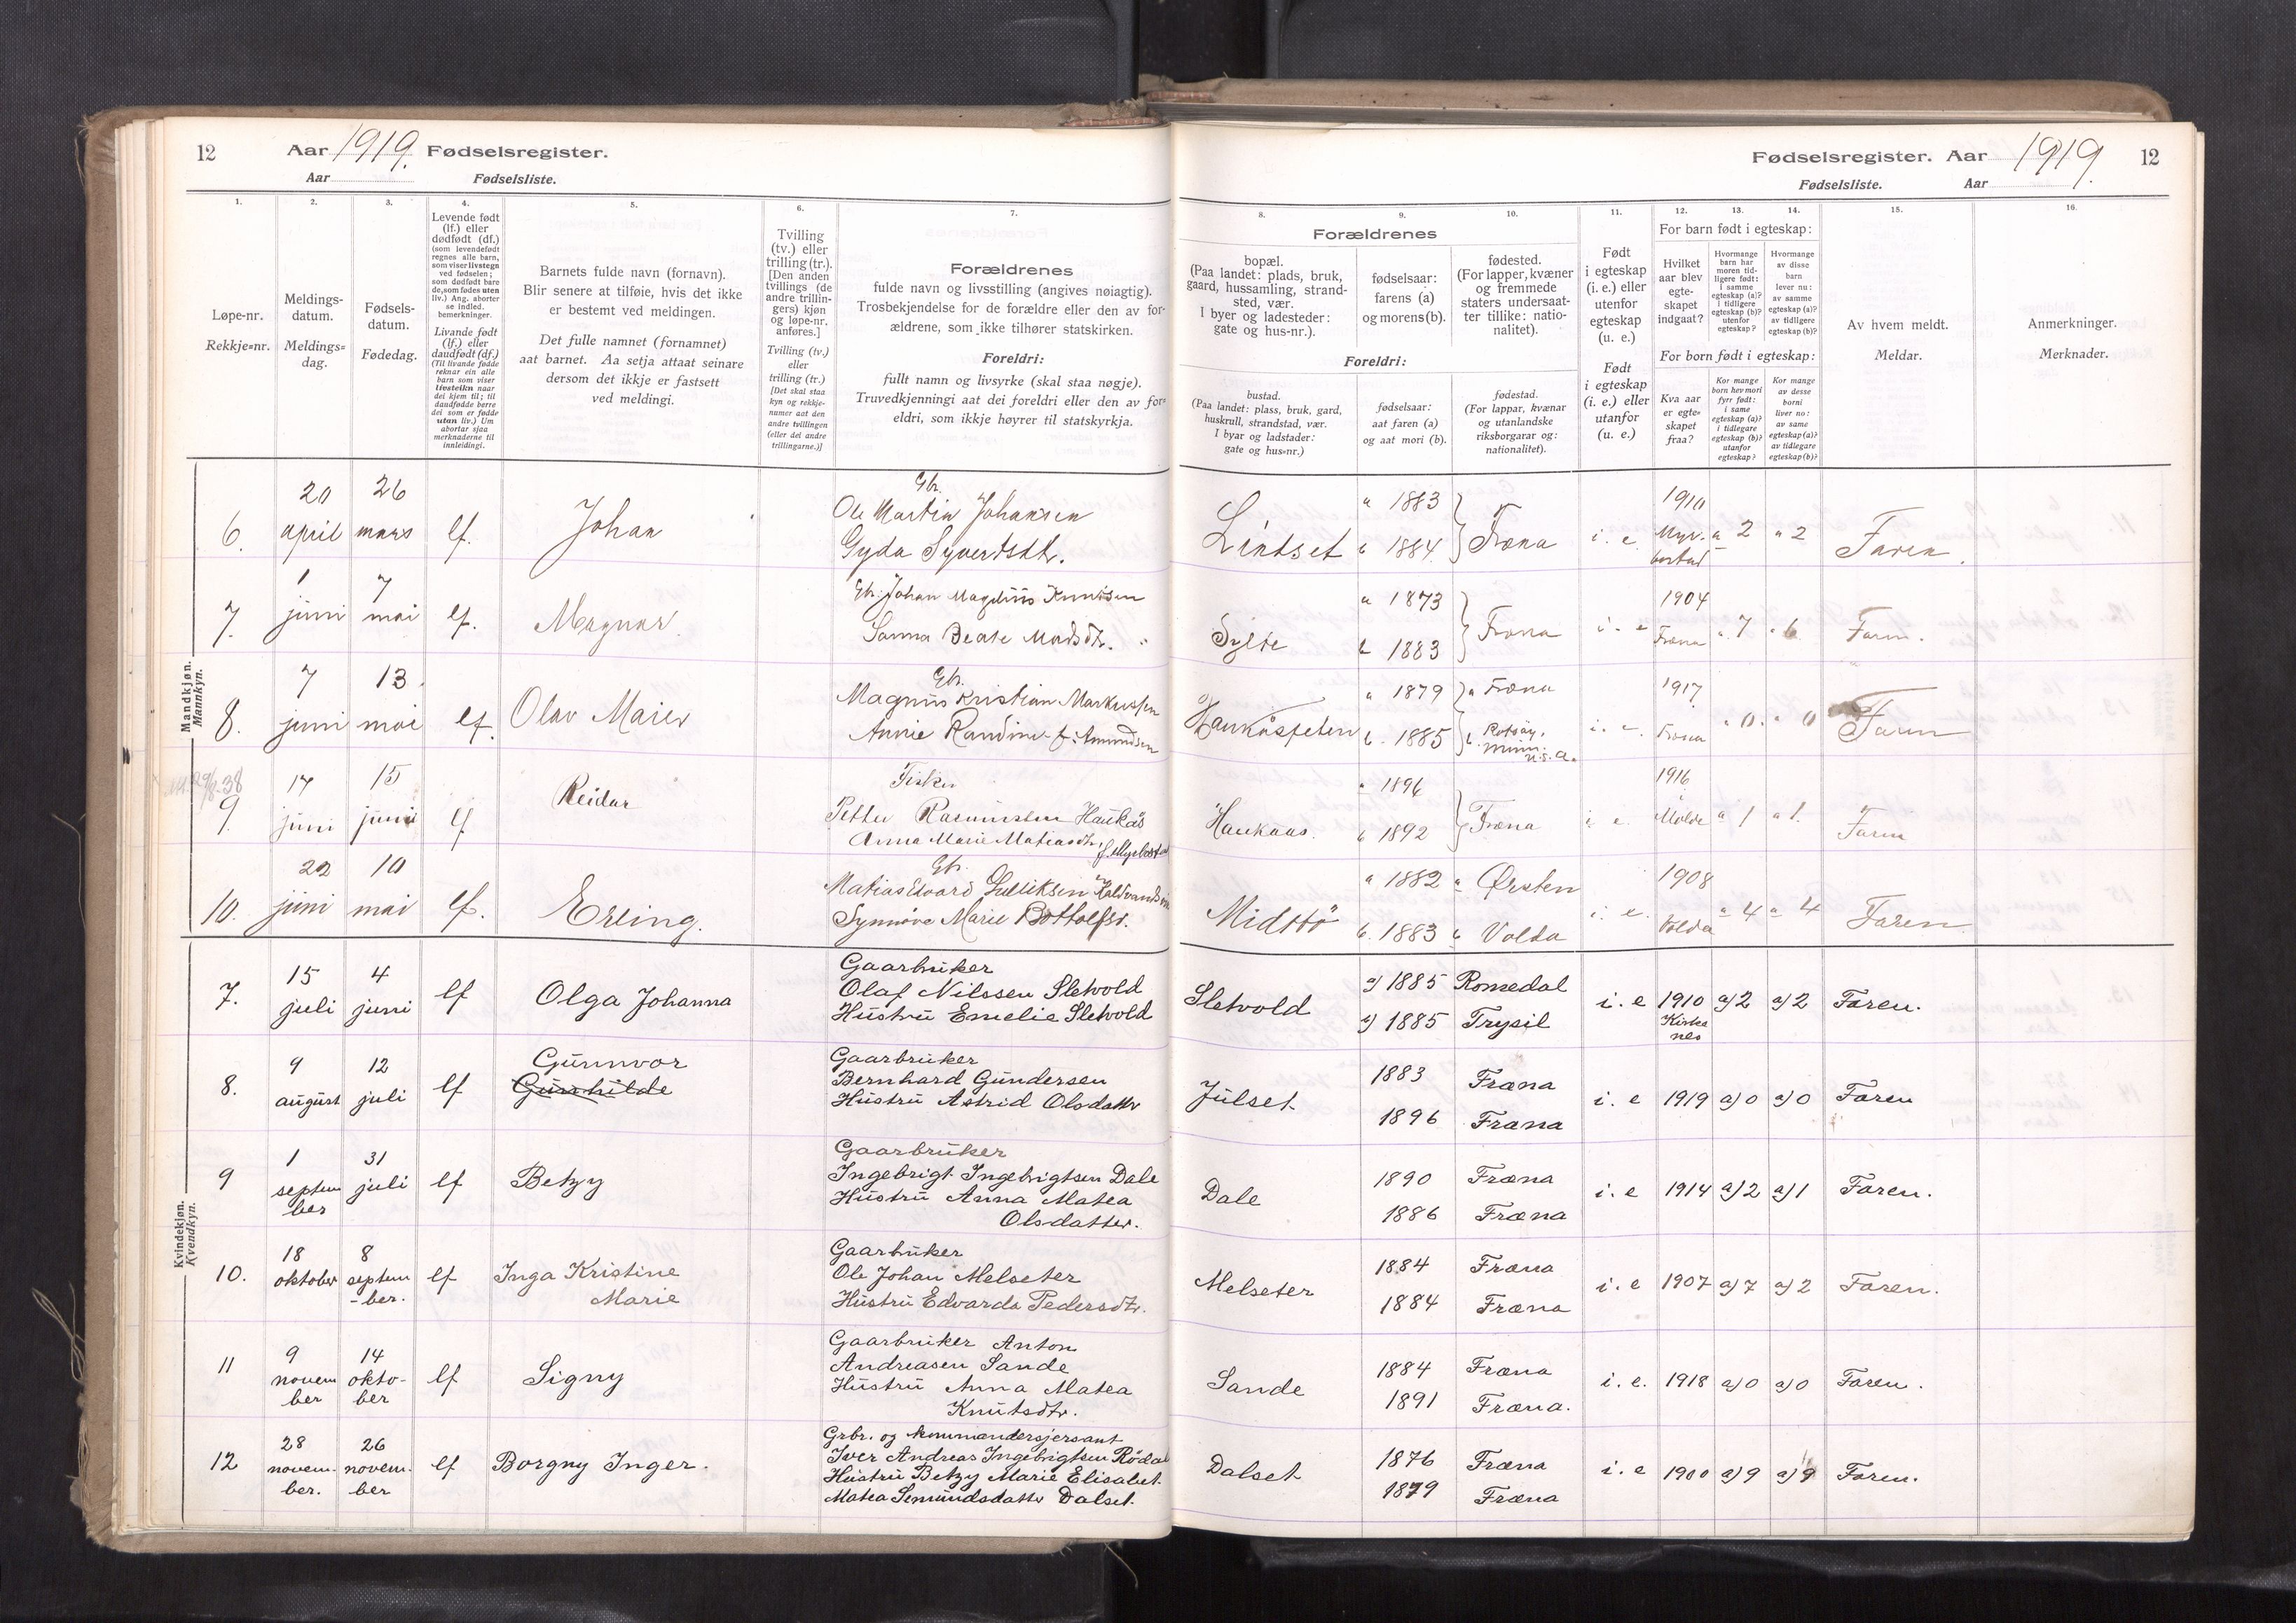 12 Aar 1919. Fødselsregister.
Aar Fødselsliste.
Fødselsregister. Aar 1919. 12
Fødselsliste. Aar
1. 2. 3. 4. 5. 6. 7.
Løpe-nr.
Rekkje=nr.
Meldings-
datum.
Meldings=
dag.
Fødsels-
datum.
Fødedag.
Levende født
(lf.) eller
dødfødt (df.)
(som levendefødt
regnes alle barn,
som viser livstegn
ved fødselen;
som dødfødt bare
de, som fødes uten
liv.) Ang. aborter
se indled.
bemerkninger.
Livande født
(lf.) eller
daudfødt (df.)
(Til livande fødde
reknar ein alle
barn som viser
livsteikn naar
dei kjem til; til
daudfødde berre
dei som er fødde
utan liv.) Um
abortar sjaa
merknaderne til
innleidingi.
Barnets fulde navn (fornavn).
Blir senere at tilføie, hvis det ikke
er bestemt ved meldingen.
Det fulle namnet (fornamnet)
aat barnet. Aa setja attaat seinare
dersom det ikkje er fastsett
ved meldingi.
Tvilling
(tv.) eller
trilling (tr.).
[Den anden
tvillings (de
andre trillin-
gers) kjøn
og løpe-nr.
anføres.]
Tvilling (tv.)
eller
trilling (tr.)
[Det skal staa
kyn og rekkje-
numer aat den
andre tvillingen
(eller dei andre
trillingarne.)]
Forældrenes
fulde navn og livsstilling (angives nøiagtig).
Trosbekjendelse for de forældre eller den av for-
ældrene, som ikke tilhører statskirken.
Foreldri:
fullt namn og livsyrke (skal staa nøgje).
Truvedkjenningi aat dei foreldri eller den av for-
eldri, som ikkje høyrer til statskyrkja.
8. 9. 10. 11. 12. 13. 14. 15. 16.
Forældrenes
bopæl.
(Paa landet: plads, bruk,
gaard, hussamling, strand-
sted, vær.
I byer og ladesteder:
gate og hus-nr.).
fødselsaar:
farens (a)
og morens (b).
fødested.
(For lapper, kvæner
og fremmede
staters undersaat-
ter tillike: natio-
nalitet).
Foreldri:
bustad.
(Paa landet: plass, bruk, gard,
huskrull, strandstad, vær.
I byar og ladstader:
gate og hus=nr.)
fødselsaar:
aat faren (a)
og aat mori (b).
fødestad.
(For lappar, kvænar
og utanlandske
riksborgarar og:
nationalitet).
Født
i egteskap
(i. e.) eller
utenfor
egteskap
(u. e.)
Født
i egteskap
(i. e.) eller
utanfor
(u. e.)
For barn født i egteskap:
Hvilket
aar blev
egte-
skapet
indgaat?
Hvormange
barn har
moren tid-
ligere født:
i samme
egteskap (a)?
i tidligere
egteskap (b)?
utenfor
egteskap?
Hvormange
av disse
barn
lever nu:
av samme
egteskap (a)?
av tidligere
egteskap (b)?
For born født i egteskap:
Kva aar
er egte=
skapet
fraa?
Kor mange
born hev mori
fyrr født:
i same
egteskap (a)?
i tidlegare
egteskap (b)?
utanfor
egteskap?
Kor mange
av desse
borni
liver no:
av same
egteskap (a)?
av tidlegare
egteskap (b)?
Av hvem meldt.
Meldar.
Anmerkninger.
Merknader.
Mandkjøn.
Mannkyn.
Gbr.
6. 20 april 26 mars lf. Johan Ole Martin Johansen
Gyda Syvertsdtr.
Lindset a 1883 b 1884 Fræna i. e. 1910 a 2 a 2 Faren.
7. 1 juni 7 mai lf. Magnar Gbr. Johan Magnus Knutsen
Sanna Beate Madsdtr.
Sylte a 1873 b 1883 Fræna i. e 1904 Fræna a 7 a 6 Faren.
Gbr.
8. 7 juni 13 mai lf. Olav Maier Magnus Kristian Markussen
Annie Randine f. Amundsen
a 1879 b. 1885 a Fræna b. Minn. U.S.A. i. e. 1917 Fræna a 0. a 0 Faren
9. 17 juni 15 juni lf Reidar Fisker
Petter Rasmussen Haukås
Anna Marie Matiasdtr. f. Myrbostad
Haukaas. a 1896 b 1892 Fræna i e. 1916 Molde a 1 a 1. Faren
Gbr.
10. 22 juni 10 mai lf. Erling. Matias Edvard Gulliksen
Synnøve Marie Bottolfsdr.
Midtbø a 1882 b. 1883 a Ørsten b Volda i. e. 1908 Volda a 4 a 4 Faren
Kvindekjøn.
Kvendkyn.
7. 15 juli 4 juni lf Olga Johanna Gaarbruker
Olaf Nilssen Sletvold
Hustru Emelie Sletvold
Sletvold a) 1885 1885 Romedal Trysil i. e 1910 Kirkenes a) 2 a) 2 Faren.
8. 9 august 12 juli lf Gunnvor Gunhilde Gaarbruker
Bernhard Gundersen
Hustru Astrid Olsdattr
Julset 1883 1896 Fræna Fræna i. e 1919 a) 0 a) 0 Faren
9 1 september 31 juli lf Betzy Gaarbruker
Ingebrigt Ingebrigtsen Dale
Hustru Anna Matea
Olsdatter.
Dale 1890 1886 Fræna Fræna i. e 1914 a) 2 a) 1 Faren.
10. 18 oktober 8 septem-ber. lf Inga Kristine Marie Gaarbruker
Ole Johan Melseter
Hustru Edvarda Pedersdtr.
Melseter 1884 1884 Fræna Fræna i. e 1907 a) 7 a) 2 Faren.
11 9 november 14 okto-ber lf Signy Gaarbruker Anton
Andreasen Sande
Hustru Anna Matea
Knutsdtr.
Sande 1884 1891 Fræna Fræna. i. e. 1918 a) 0 a) 0 Faren.
12 28 novem-ber. 26 novem-ber lf Borgny Inger. Grbr. og kommandersjersant
Iver Andreas Ingebrigtsen Rödal
Hustru Betzy Marie Elisabet
Matea Semundsdatter Dalset.
Dalset 1876 1879 Fræna Fræna i. e 1900 a) 9 a) 9 Faren.